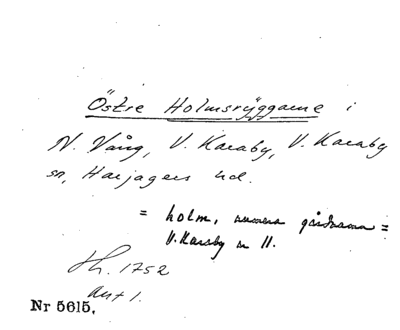 Östre Holmsryggarne i
N. Vång, V. Karaby, V. Karaby
sn, Harjagers hd.
= holm, numera gårdnamn =
V. Karaby n 11.
Sk. 1752
akt 1.
Nr 5615.